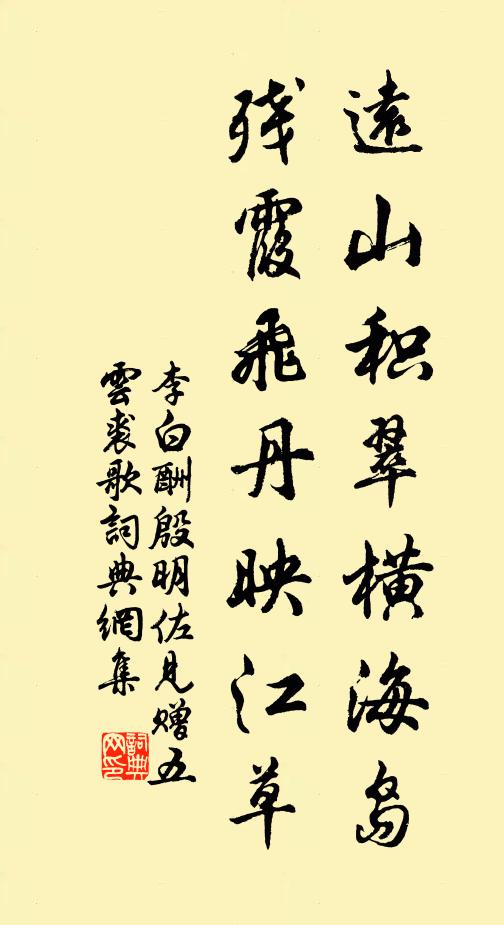 遠山积翠橫海島
残霞飛丹映江草
李白酬殷明佐見赠五
雲裘歌詞典網集
詞典
网印